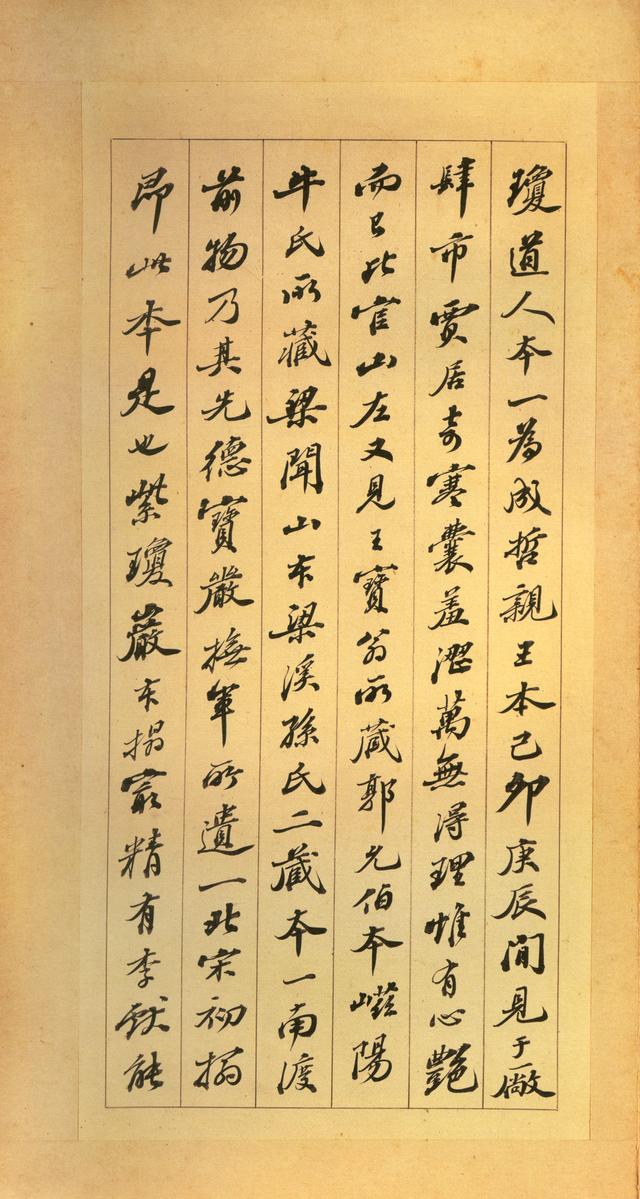 瓊道人本一為成哲親王本己卯庚辰間見于廠
肆市賈居奇寒囊羞澀萬無得理惟有心艷
而已比官山左又見王寶翁所藏郭允伯本嶧陽
牛氏所藏梁聞山本梁溪孫氏二藏本一南渡
前物乃其先德寶嚴撫軍所遺一北宋初搨
即此本是也紫瓊巖本搨最精有李獻能